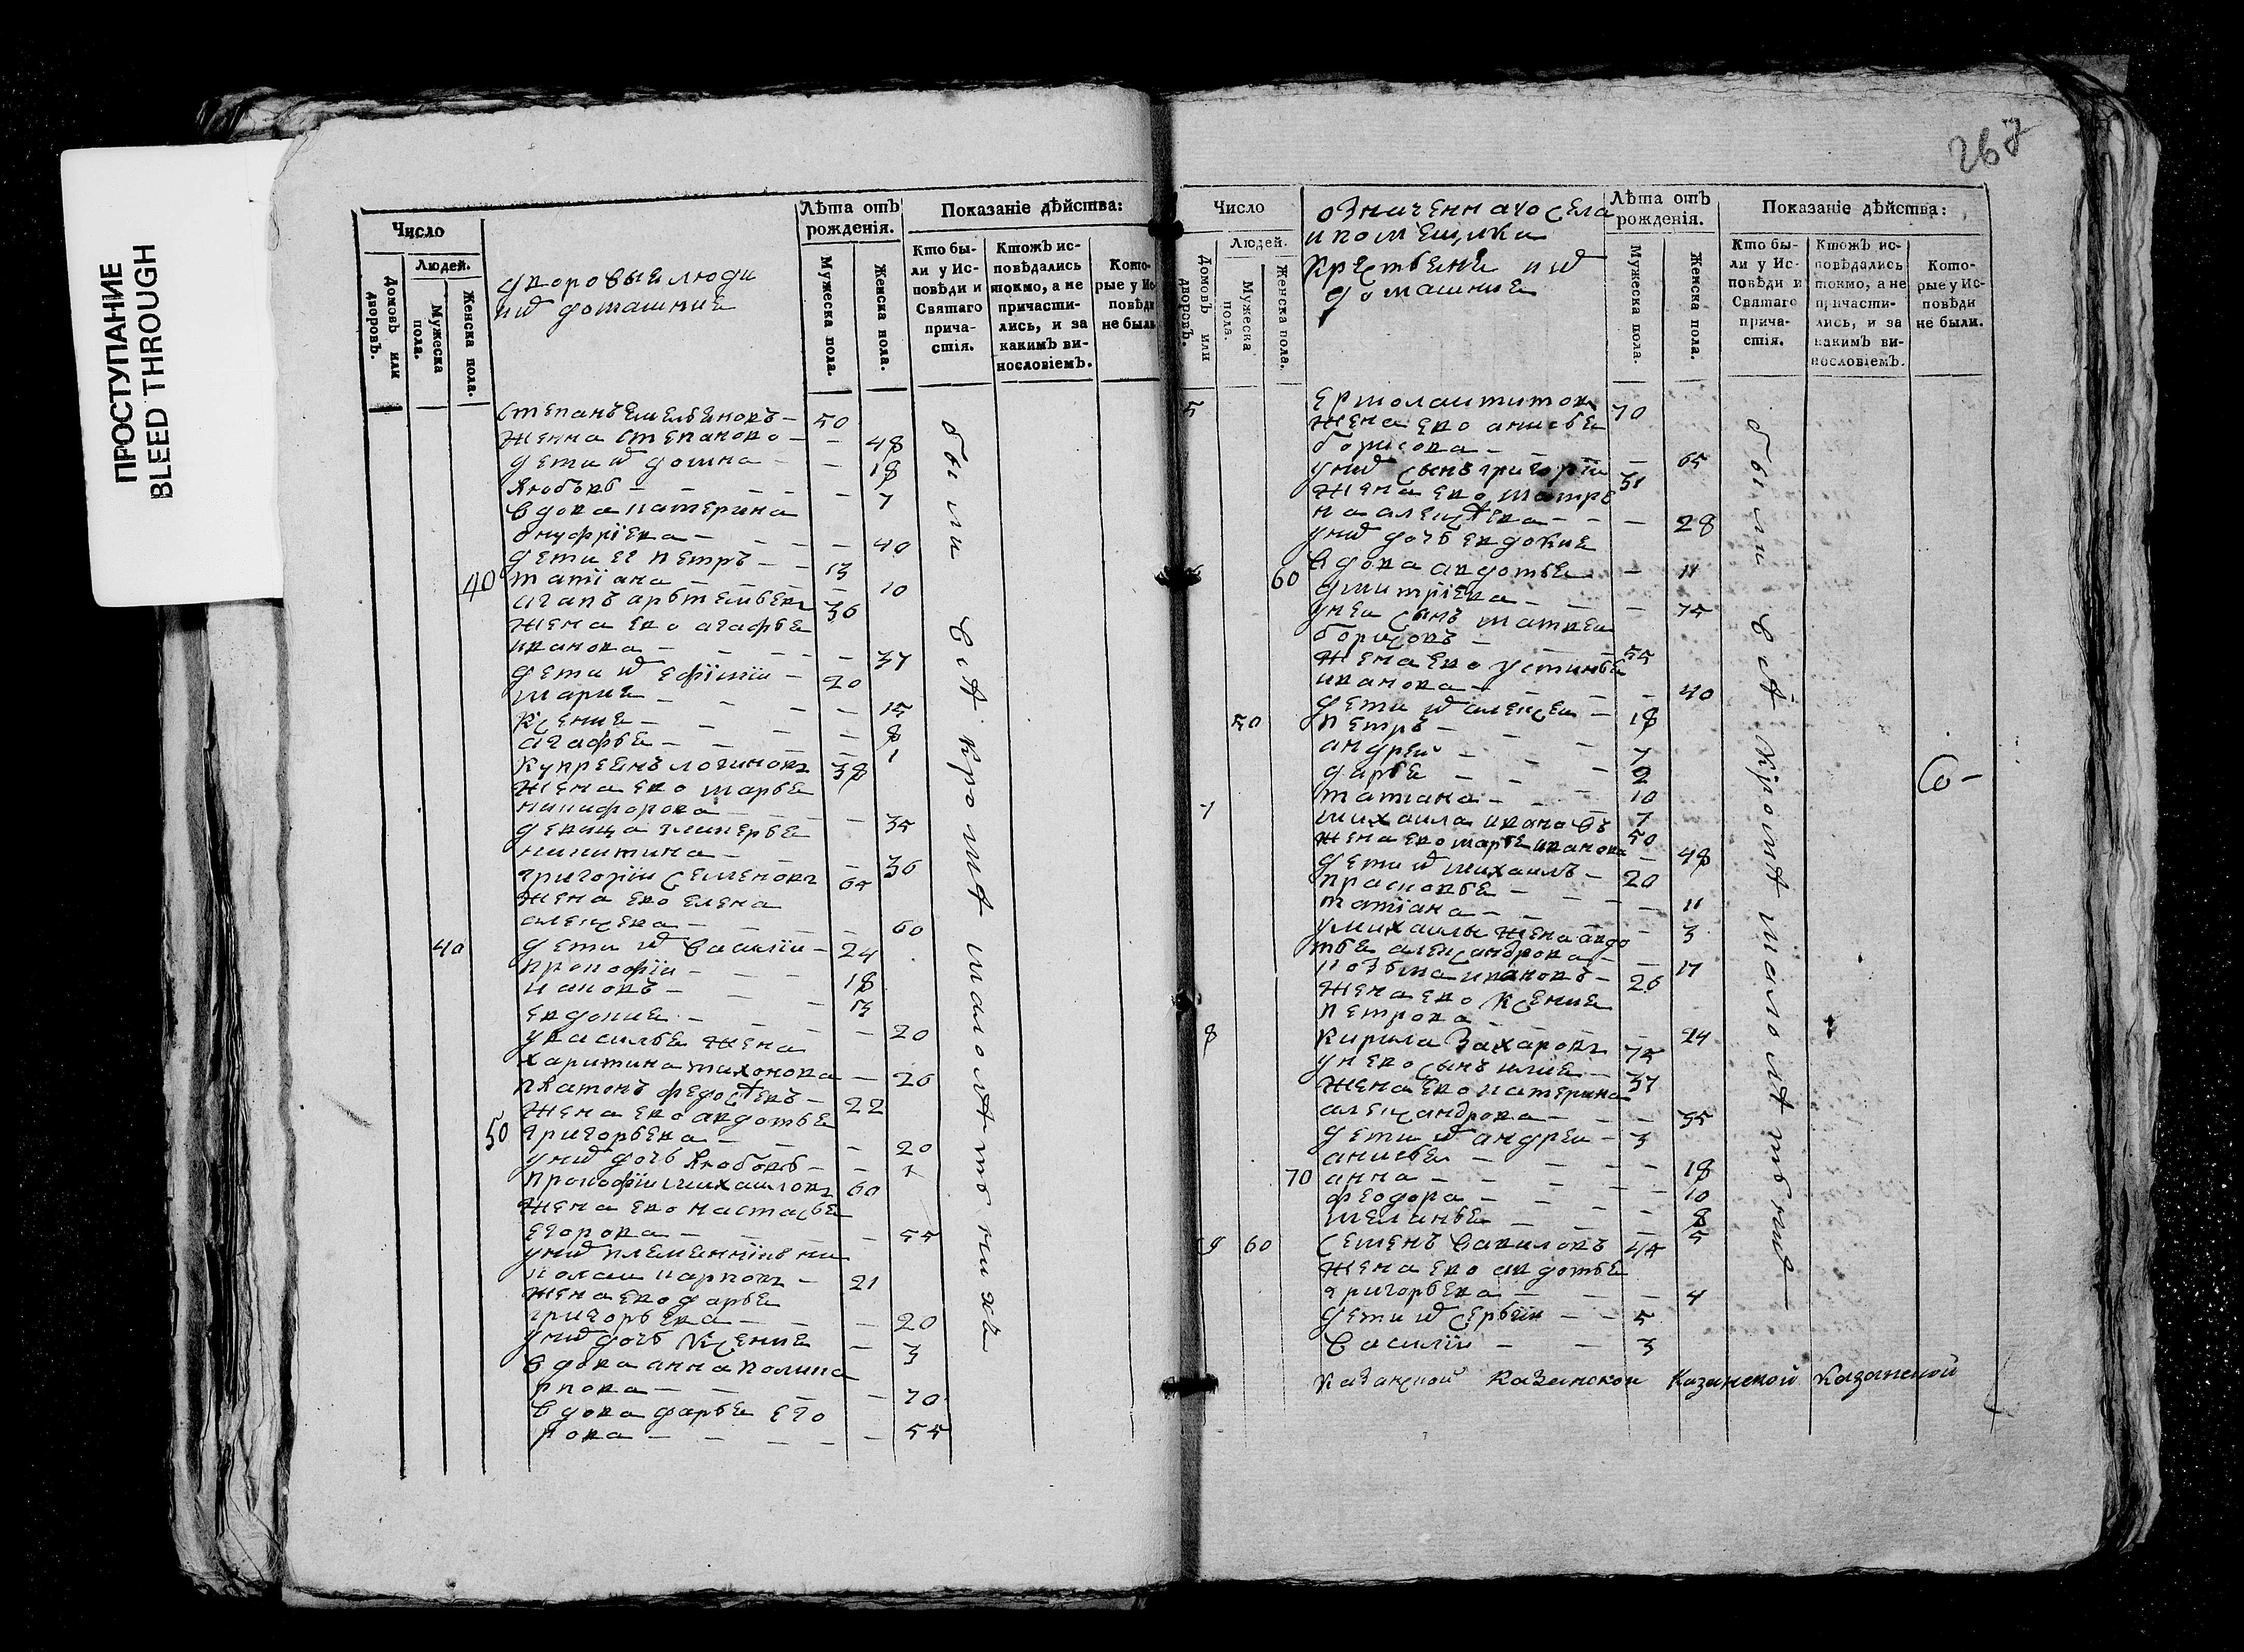 ПРОСТУПАНИЕ
BLEED THROUGH
Число
Людей.
Домовъ или дворовъ.
Мужеска пола.
Женска пола.
дворовыя люди
ихъ домашние
Лѣта отъ рожденія.
Мужеска пола.
Женска пола.
Показаніе дѣйства:
Кто были у Исповѣди и Святаго причастія.
Ктожъ исповѣдались токмо, а не причастились, и за какимъ винословіемъ.
Которые у Исповѣди не были
Степанъ Емельеновъ — 50
жена Степаново — — 48
дети их домна — — 18
Любовь — — 7
вдова катерина
онуфріева — — 40
дети ее петръ — — 13
40 татіана — — 10
агапъ артемьевъ 36
жена ево агафье
иванова — — 37
дети их ефимїи — 20
марие — — 15
Ксение — — 8
агафье — — 1
Купреенъ логиновъ 38
жена ево марье
никифорова — — 35
девица гликерье
никитина — — 36
григории семеновъ 65
жена ево елена
алексева — — 60
40 дети их василїи — 24
прокофїи — — 18
ивановъ — — 13
евдокие — — 20
у василье жена
харитина тихонова — 26
платонъ федосѣевъ — 22
жена ево авдотье
50 григорьева — — 20
у них дочь Любовь — — 1
прокофїи михаиловъ 60
жена ево настасье
егорова — — 55
у них племенникъ ни
колаи карповъ — 21
жена ево дарье
григорьева — — 20
у них дочь Ксение — 3
вдова анна полика
рпова — — 70
вдова дарье его
рова — — 55
были
всѣ кромѣ малолѣтныхъ
267
Число
Людей.
Домовъ или дворовъ.
Мужеска пола.
Женска пола.
означеннаго села
и помещика
Крестьене их
домашние
Лѣта отъ рожденія.
Мужеска пола.
Женска пола.
Показаніе дѣйства:
Кто были у Исповѣди и Святаго причастія.
Ктожъ исповѣдались токмо, а не причастились, и за какимъ винословіемъ.
Которые у Исповѣди не были.
5 ермолаи титовъ 70
жена ево анисье
борисова — — 65
у них сынъ григорїи 31
жена ево матре
на алексѣева — — 28
у них дочь евдокие — 11
6 60 вдова авдотье
дмитрїева — — 75
у нее сынъ матвеи
борисовъ — — 55
жена ево устинье
иванова — — 40
дети их алексеи — 18
50 петръ — — 7
андреи — — 2
дарье — — 10
татиана — — 7
7 михаила ивановъ 50
жена ево марье иванова — 48
дети их михаилъ — 20
прасковье — — 11
татіана — — 3
у михаилы жена авдо
тье александрова — — 17
козьма ивановъ — 26
жена ево Ксение
петрова — — 24
8 Кирила Захаровъ 75
у нево сынъ илие — 37
жена ево катерина
александрова — — 35
дети их андреи — 3
анисье — — 18
70 анна — — 10
феодора — — 8
меланье — — 5
9 60 Семенъ Савиловъ 45
жена ево авдотье
григорьева — — 4
дети их сергеи — — 5
Василїи — — 3
были всѣ кромѣ малолѣтныхъ
Казанской Казанской Казанской Казанской